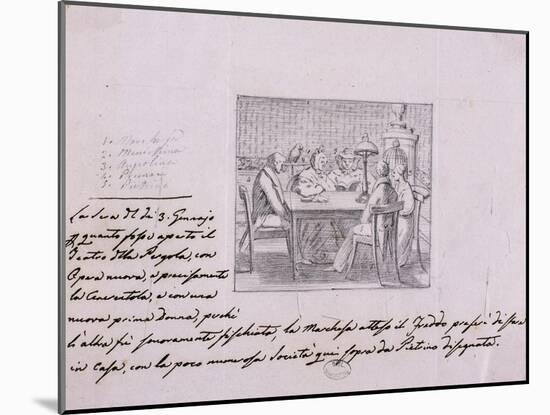 1.
2.
3. Angiolina
4.
5. Pietrino
La Sera del dì 3. Gennajo
quanto fosse aperto il
Teatro della Pergola, con
Opera nuova, e precisamente
la Cenerentola, e con una
nuova prima Donna, perchè
l'altra fù sonoramente fischiata, la Marchesa atteso il freddo preferì di stare
in Casa, con la poco numerosa Società qui sopra da Pietrino disegnata.